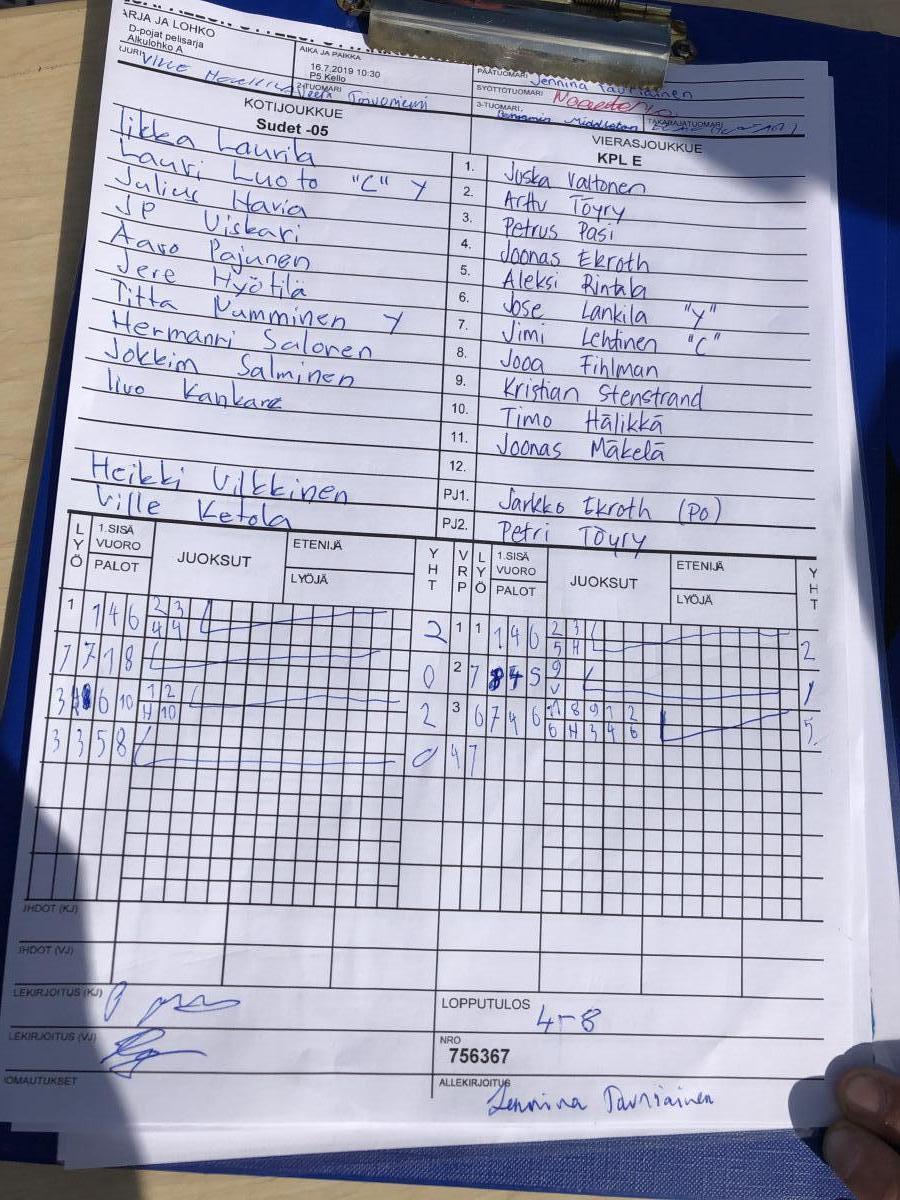 ARJA JA LOHKO
D-pojat pelisarja
Alkulohko A
AIKA JA PAIKKA
16.7.2019 10:30
P5 Kello
PÄÄTUOMARI Jennina Tauriainen
SYÖTTÖTUOMARI
2-TUOMARI
3-TUOMARI,
Benjamin Middleton
TAKARAJATUOMARI
KOTIJOUKKUE
Sudet -05
VIERASJOUKKUE
KPL E
Iikka Laurila 1. Juska Valtonen
Lauri Luoto "C" Y 2. Arttu Töyry
Julius Havia 3. Petrus Pasi
JP Uiskari 4. Joonas Ekroth
Aaro Pajunen 5. Aleksi Rintala
Jere Hyötilä 6. Jose Lankila "Y"
Titta Numminen Y 7. Jimi Lehtinen "C"
Hermanni Salonen 8. Jooa Fihlman
Jokkim Salminen 9. Kristian Stenstrand
Iivo Kankare 10. Timo Hälikkä
11. Joonas Mäkelä
12.
Heikki Vilkkinen PJ1. Jarkko Ekroth (PO)
Ville Ketola PJ2. Petri Töyry
LYÖ 1.SISÄ VUORO PALOT JUOKSUT ETENIJÄ LYÖJÄ YHT VRP LYÖ 1.SISÄ VUORO PALOT JUOKSUT ETENIJÄ LYÖJÄ YHT
1 1 4 6 2 3 2 1 1 1 4 6 2 3 2
4 4 5 H
7 7 1 8 0 2 7 4 5 9 1
V
3 6 10 1 2 2 3 6 7 4 6 11 8 9 1 2 5
H 10 6 H 3 4 6
3 3 5 8 0 4 7
LEKIRJOITUS (KJ)
LOPPUTULOS 4-8
LEKIRJOITUS (VJ)
NRO
756367
OMAUTUKSET
ALLEKIRJOITUS
Jennina Tauriainen